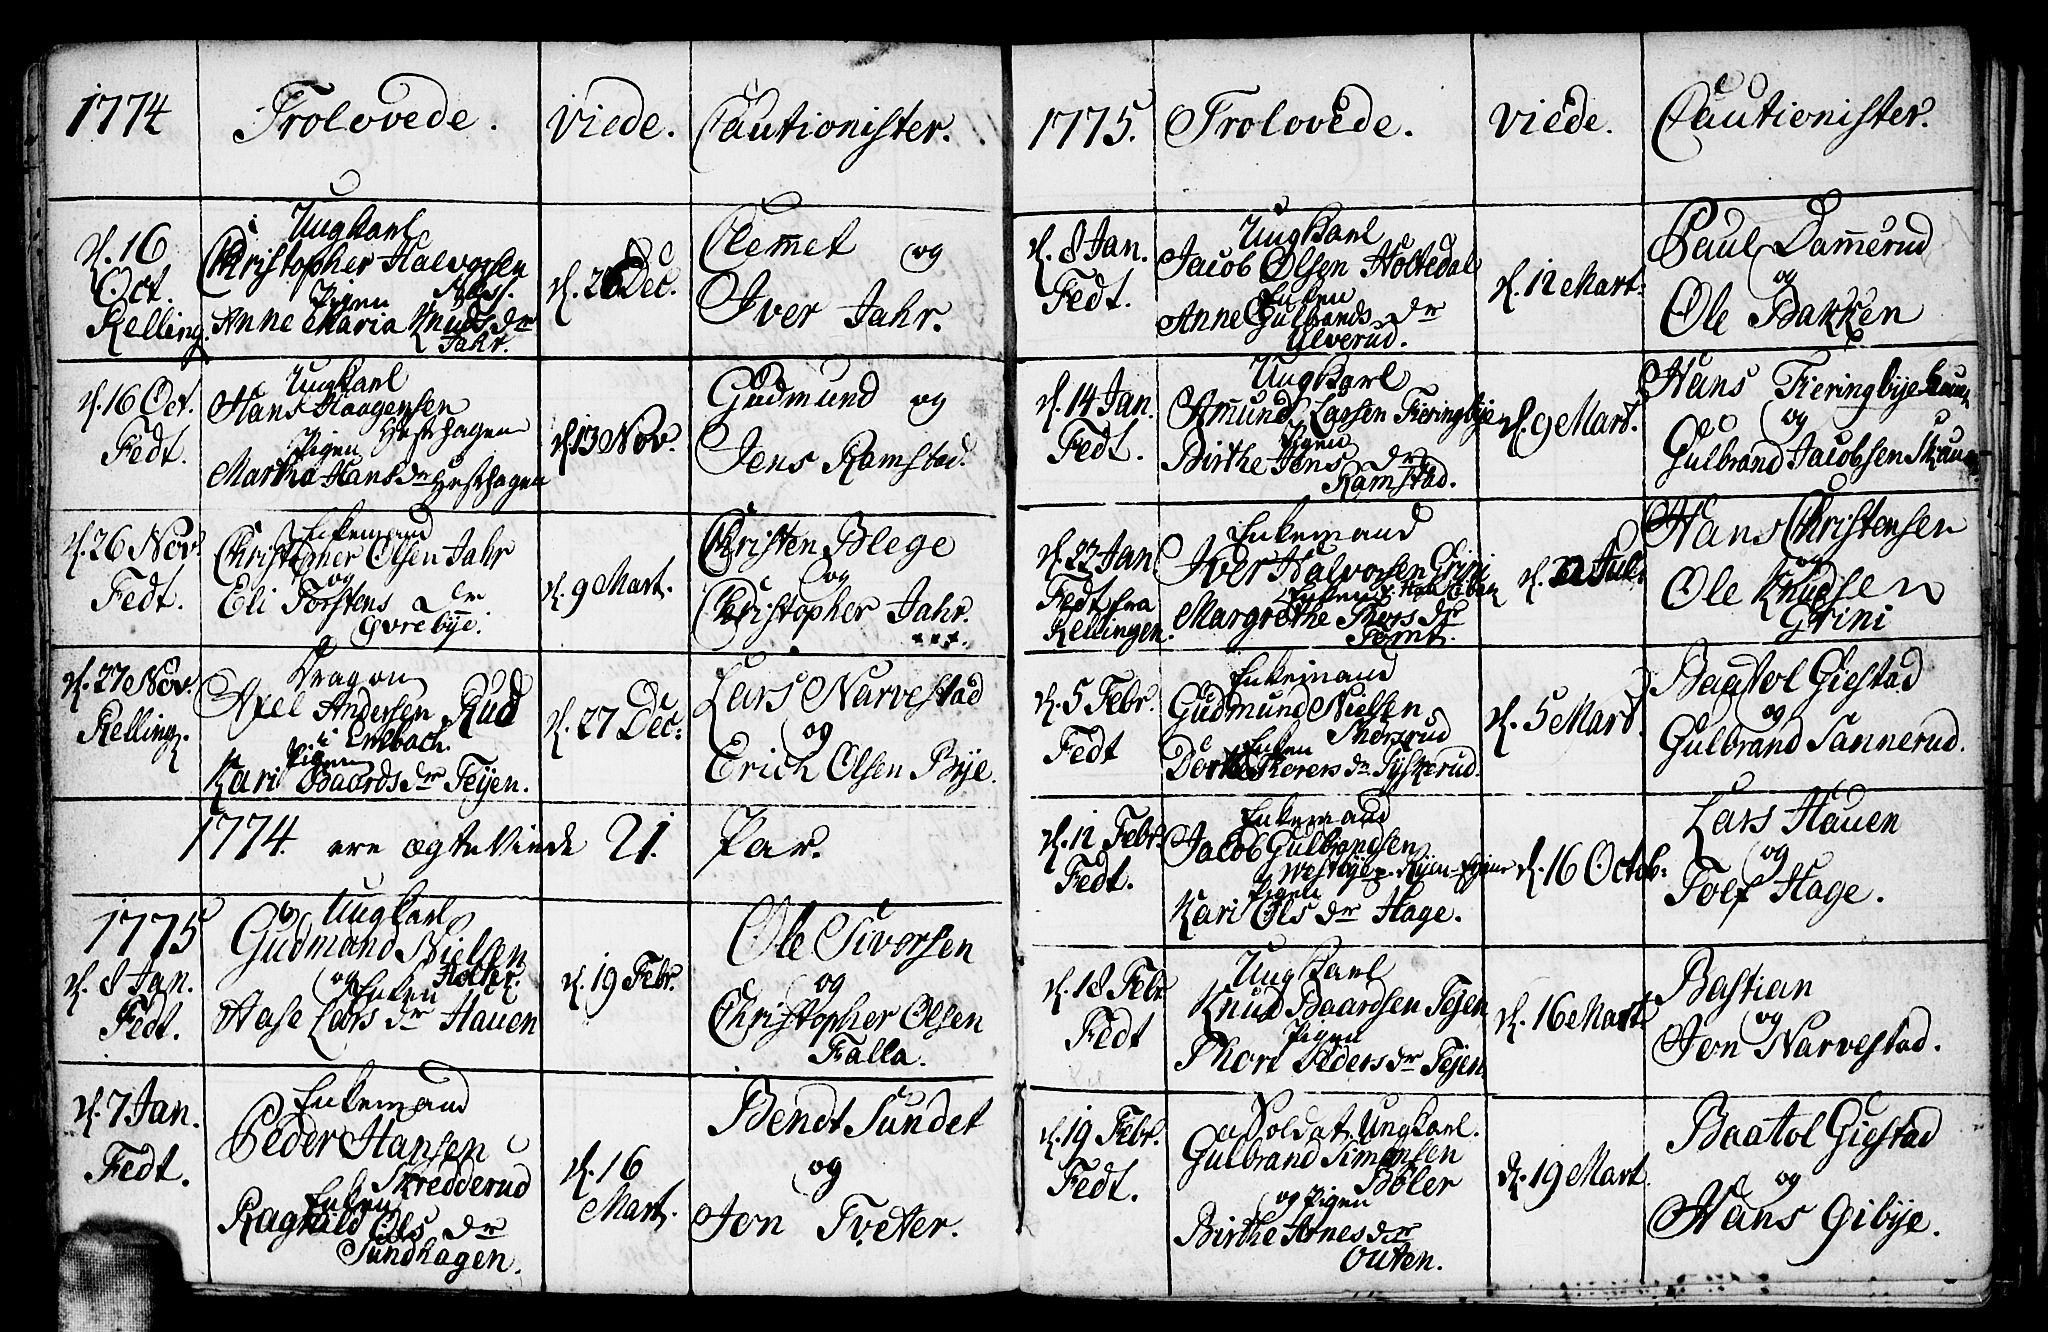 1774 Trolovede. Viede. Cautionister.
d. 16 Oct. Kelling.
Ungkarl
Christopher Halvorsen
Pigen
Anne Maria Knuds dr
Jahr.
d. 26 Dec.
Clemet og
Iver Jahr.
d. 16 Oct.
Fedt.
Ungkarl
Hans Haagensen
Hesthagen
Pigen
Martha Hans dr Hesthagen
d. 13 Nov.
Gudmund og
Jens Ramstad.
d. 26 Nov.
Fedt.
Enkemand
Christopher Olsen Jahr
og
Eli Torstens dr
Gvrebÿe.
d. 9 Mart.
Christen Blege
og
Christopher Jahr.
d. 27 Nov.
Kelling.
Dragon
Axel Andersen Rud
i Enebach.
Pigen
Kari Baards dr Teÿen.
d. 27 Dec:
Lars Narvestad
og
Erich Olsen Bÿe.
1774. ere ægte Viede 21. Par.
1775
d. 8 Jan.
Fedt.
Ungkarl
Gudmand Nielsen
Holter.
og Enken
Aase Lars dr Hauen
d. 19 Febr.
Ole Siversen
og
Christopher Olsen
Falla.
d. 7 Jan.
Fedt.
Enkemand
Peder Hansen
Skredderud
Enken
Ragnild Ols dr
Sundhagen.
d. 16
Mart.
Bendt Sundet
og
Jon Tveter.
1775. Trolovede. Viede. Cautionister.
d. 8 Jan.
Fedt.
Ungkarl
Jacob Olsen Holtedal
Enken
Anne Gulbrands dr
Ulverud.
d. 12 Mart:
Paul Dammerud
og
Ole Bakken
d. 14 Jan.
Fedt.
Ungkarl
Amund Larsen Fieringbÿe
Pigen
Birthe Jens dr
Ramstad.
d. 9 Mart.
Hans Fieringbÿe
og
Gulbrand Jacobsen
d. 22 Jan
Fedt fra
Kellingen.
Enkemand
Iver Halvorsen Grini
Enken
Margrethe Thors dr
d. 22 Jul:
Hans Christensen
og
Ole Knudsen
Grini
d. 5 Febr.
Fedt
Enkemand
Gudmund Nielsen
Thorsrud
Enken
Dorthe Thorers dr Sÿskerud.
d. 5 Mart.
Baatol Giestad
og
Gulbrand Sannerud.
d. 12 Febr.
Fedt.
Enkemand
Jacob Gulbrandsen
Westbÿe
Pigen
Kari Ols dr Hage.
d. 16 Octob:
Lars Hauen
og
Tolf Hage.
d. 18 Febr
Fedt
Ungkarl
Knud Baardsen Tejen
Pigen
Thore Peders dr Tejen
d. 16 Mart.
Bastian
og
Jon Narvestad.
d. 19 Febr.
Fedt.
Soldat. Ungkarl.
Gulbrand Simensen
Bøler
og Pigen
Birthe Arnes dr
Outen.
d. 19 Mart
Baatol Giestad
og
Hans Gibÿe.